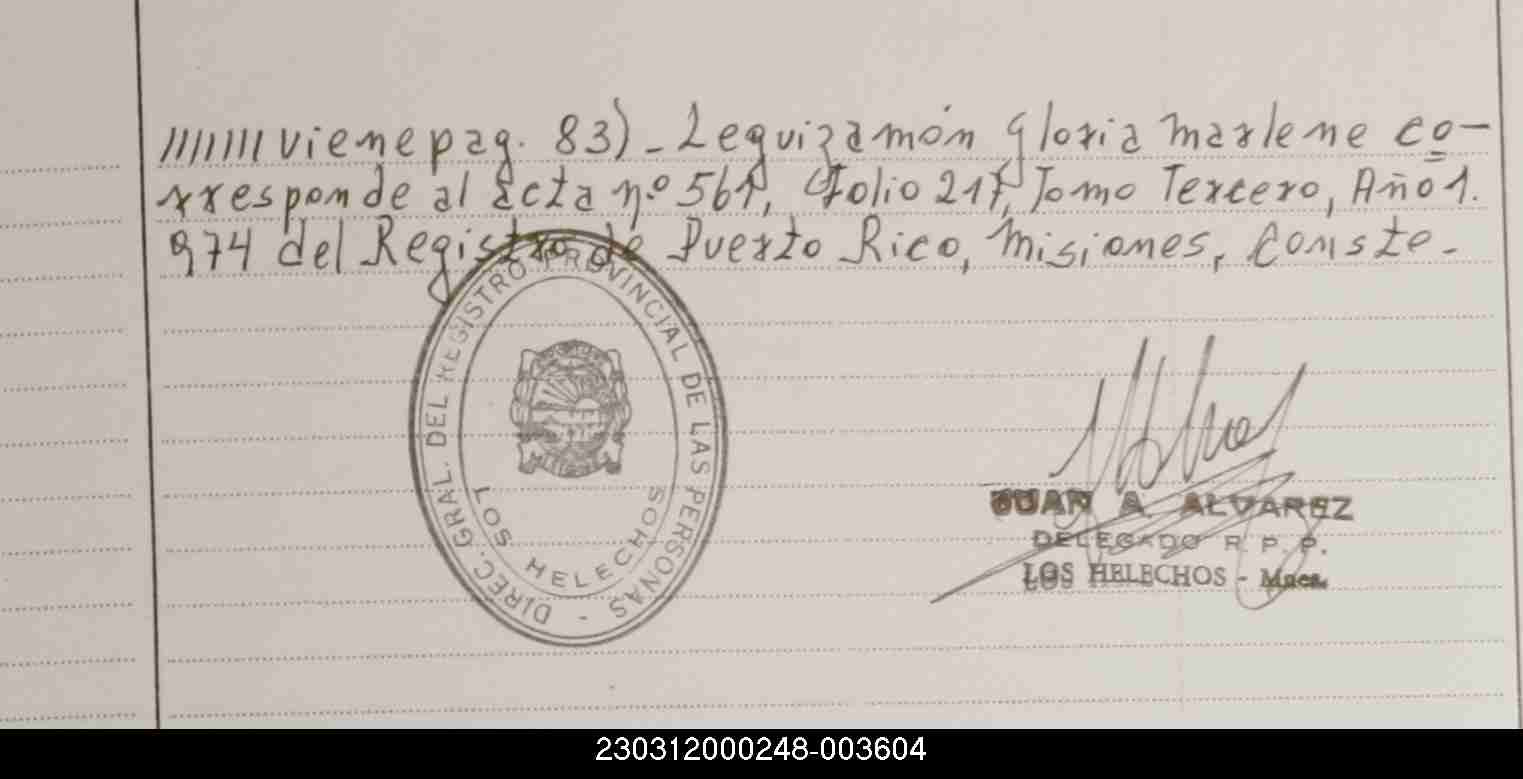 /////// viene pag. 83)_ Leguizamón Gloria Marlene co-
rresponde al acta nº 561, Folio 217, Tomo Tercero, Año 1.
974 del Registro de Puerto Rico, Misiones, Conste.-
DIREC. GRAL. DEL REGISTRO PROVINCIAL DE LAS PERSONAS -
LOS HELECHOS
JUAN A. ALVAREZ
DELEGADO R. P. P.
LOS HELECHOS - Mnes.
230312000248-003604